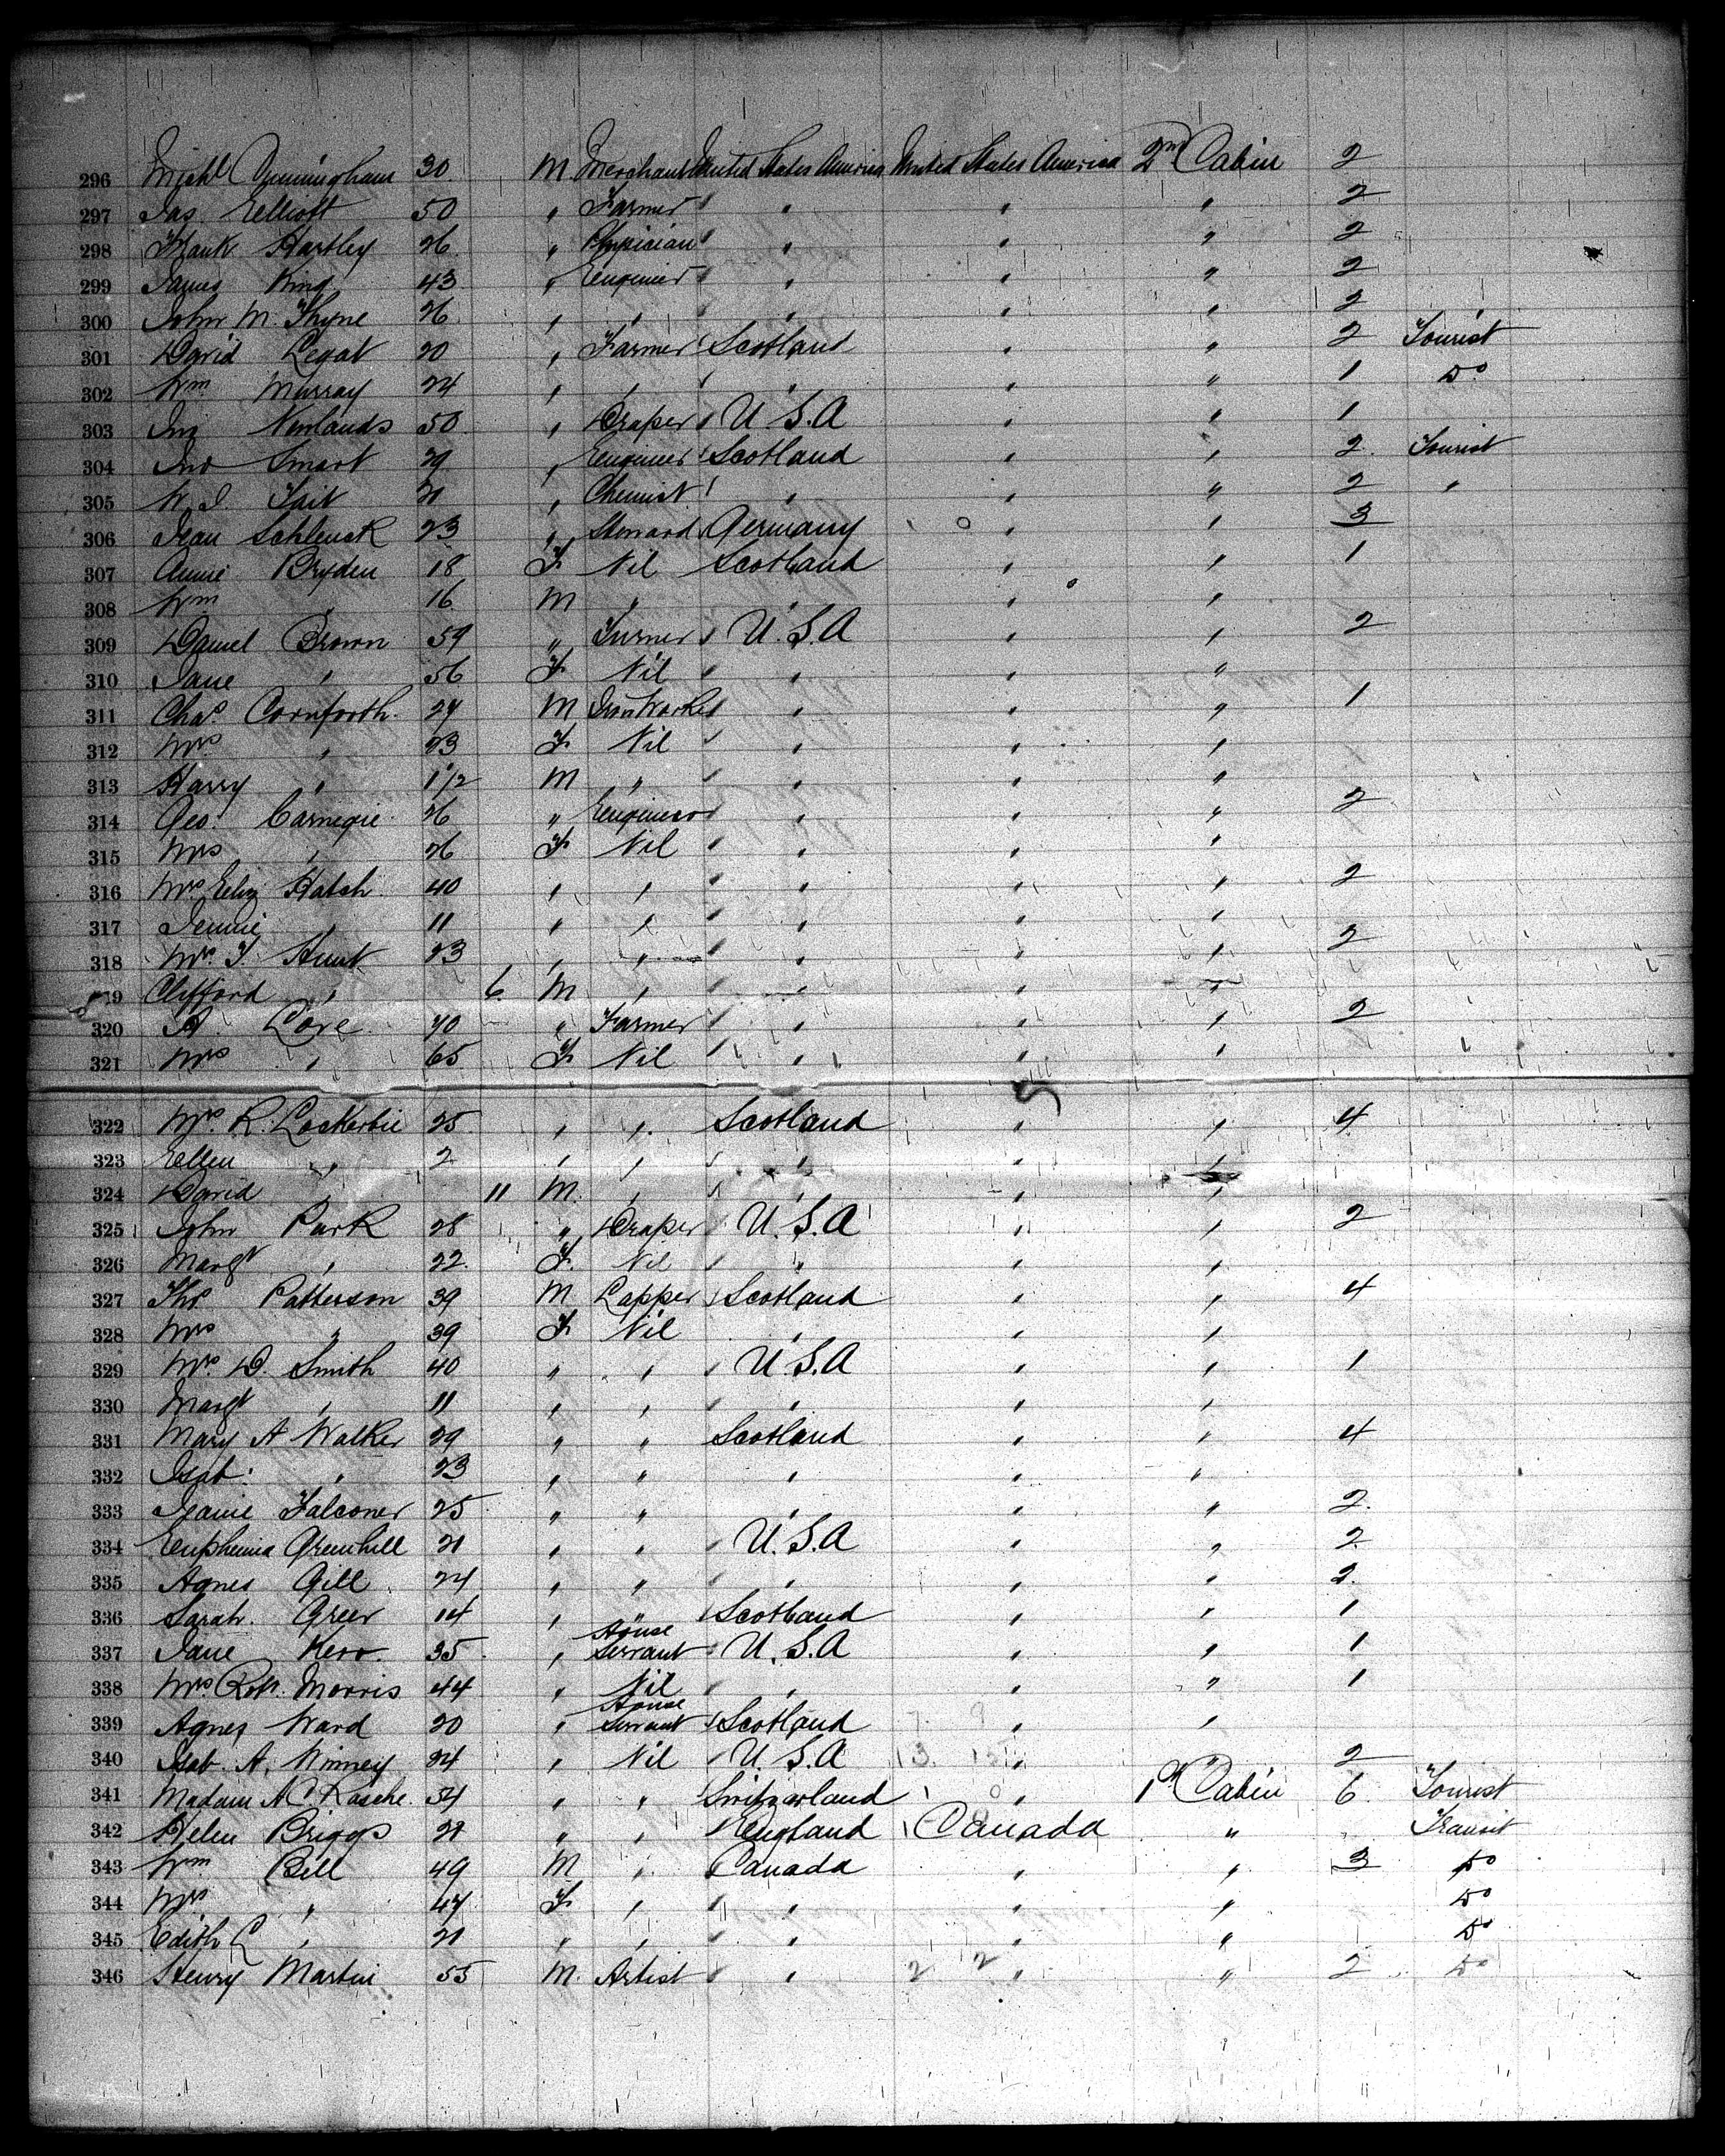 296 Michl Cunningham 30 M Merchant United States America United States America 2nd Cabin 2
297 Jas. Elliott 50 " Farmer " " " " 2
298 Frank Hartley 26 " Physician " " " " 2
299 James King 43 " Engineer " " " " 2
300 John M. Thyne 26 " " " " " 2
301 David Legat 20 " Farmer Scotland " " 2 Tourist
302 Wm Murray 24 " " " " " 1 Do
303 Newlands 50 " Draper U.S.A " " 1
304 Jno Smart 29 " Engineer Scotland " " 2 Tourist
305 W. J. Tait 21 " Chemist " " " 2 "
306 Jean Schlenck 23 " Steward Germany " " 3
307 Annie Bryden 18 F Nil Scotland " " 1
308 Wm " 16 M " " " "
309 Daniel Brown 59 " Turner U.S.A " " 2
310 Jane " 56 F Nil " " "
311 Chas. Cornforth 27 M Iron Worker " " " 1
312 Mrs " 23 F Nil " " "
313 Harry " 1 1/2 M " " " "
314 Geo. Carnegie 26 " Engineer " " " 2
315 Mrs " 26 F Nil " " "
316 Mrs Eliz Hatch 40 " " " " " 2
317 Jennie " 11 " " " " "
318 Mrs. T. Hunt 23 " " " " " 2
319 Clifford " 6 M " " " "
320 A. Love 70 " Farmer " " " 2
321 Mrs " 65 F Nil " " "
322 Mrs. R. Lockerbie 25 " " Scotland " " 4
323 Ellen " 2 " " " " "
324 David " 11 M " " " "
325 John Park 28 " Draper U.S.A " " 2
326 Margt " 22 F. Nil " " "
327 Thos Patterson 39 M Lapper Scotland " " 4
328 Mrs " 39 F Nil " " "
329 Mrs. D. Smith 40 " " U.S.A " " 1
330 Margt " 11 " " " " "
331 Mary A Walker 29 " " Scotland " " 4
332 Isab. " 23 " " " " "
333 Jeanie Falconer 25 " " " " " 2
334 Euphemia Greenhill 21 " " U.S.A " " 2
335 Agnes Gill 24 " " " " " 2
336 Sarah Greer 14 " " Scotland " " 1
337 Jane Kerr 35 " House Servant U.S.A " " 1
338 Mrs. Robt. Morris 44 " Nil " " " 1
339 Agnes Ward 20 " House Servant Scotland " "
340 Isab. A. Winney 24 " Nil U.S.A " " 2
341 Madam A C Rasche 54 " " Switzerland " 1st Cabin 6 Tourist
342 Helen Briggs 21 " " England Canada " Transit
343 Wm Bell 49 M " Canada " " 3 Do
344 Mrs " 47 F " " " " Do
345 Edith C " 21 " " " " " Do
346 Henry Martin 55 M. Artist " " " 2 Do